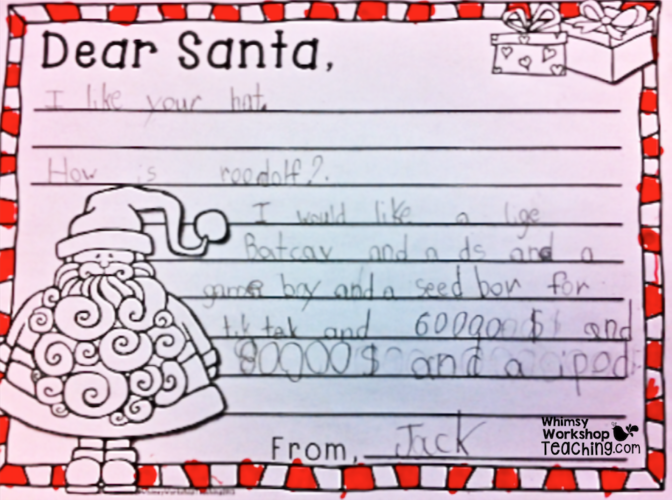 Dear Santa,
I like your hat.
How is roodolf?.
I would like a lige
Batcav and a ds and a
game boy and a seed box for
tik tak and 60000 $ and
80000 $ and a ipod
From, Jack
Whimsy
Workshop
Teaching.com